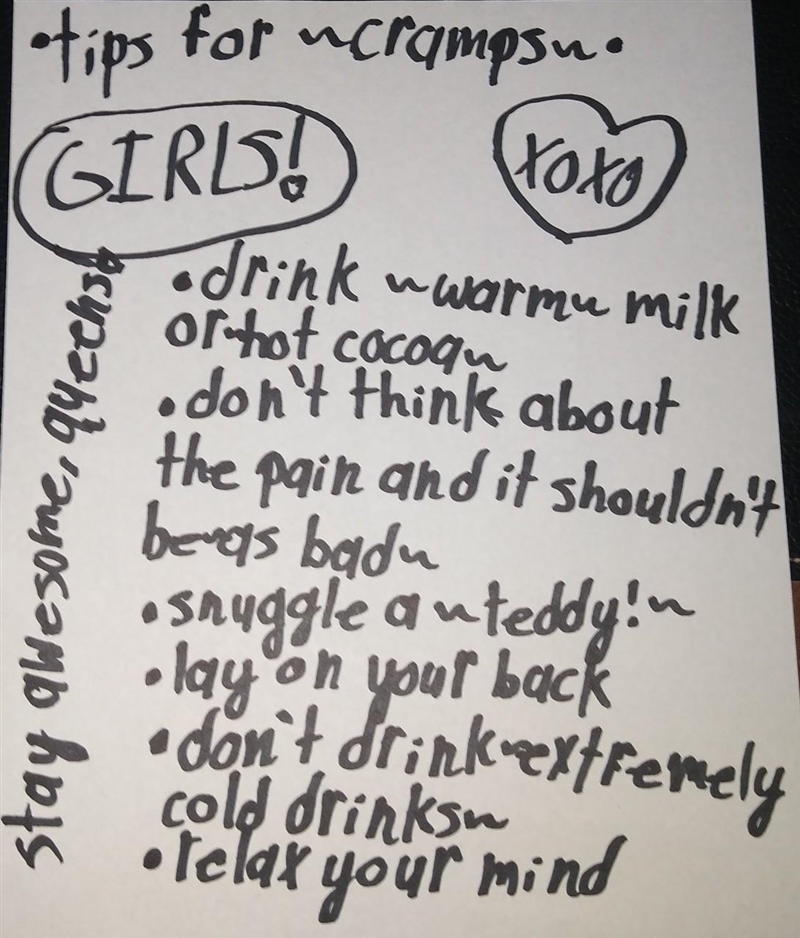 •tips for ~cramps~•
GIRLS!
xoxo
•drink ~warm~ milk
or~hot cocoa~
•don't think about
the pain and it shouldn't
be~as bad~
•snuggle a ~teddy!~
•lay on your back
•don't drink~extremely
cold drinks~
•relax your mind
stay awesome, queens